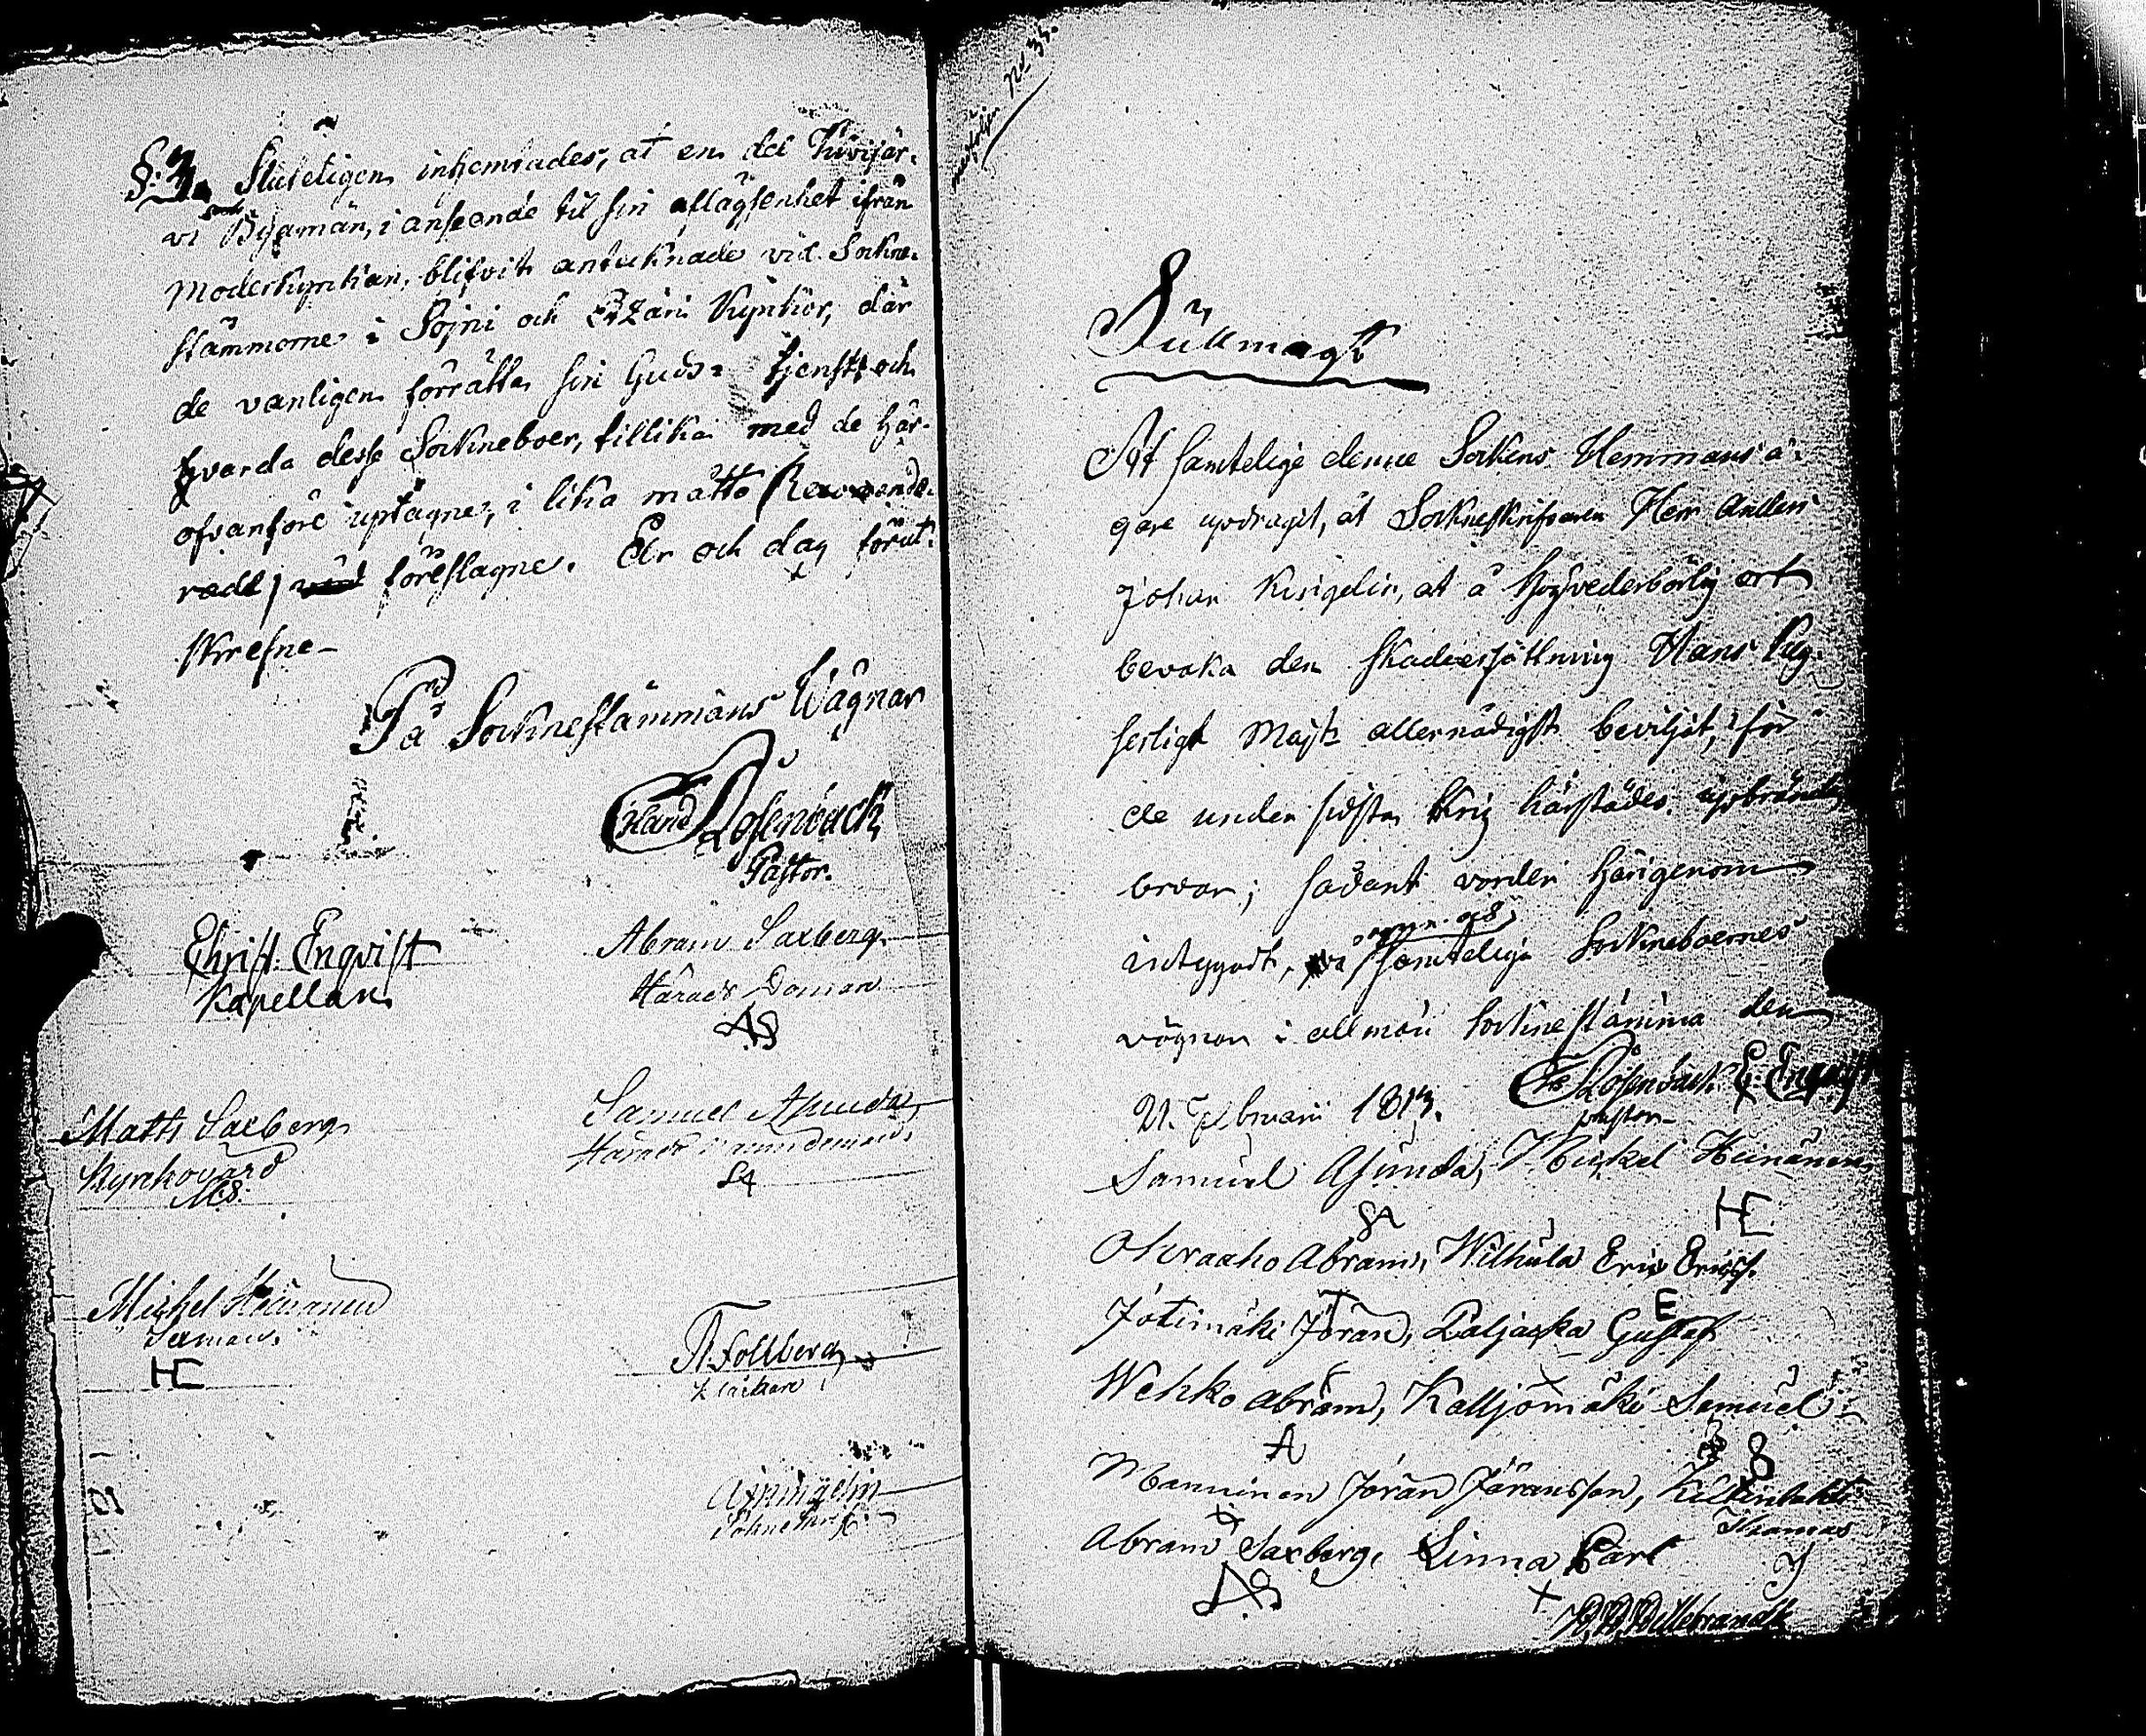 §. 3. Sluteligen inhemtades, at en del Kuivijär-
vi Byamän, i anseende til sin aflägsenhet ifrån
Moderkyrkan, blifvit antecknade vid Sockne-
stämmorne i Soini och Etzäri Kyrkor, där
de vanligen förrätta sin Guds-tjenst, och
hvarda desse Sockneboer, tillika med de här-
ofvanföre uptagne, i lika måtto
föreslagne. År och dag förut-
skrefne-
På Sockneståmmans Wägnar
Erland Rosenback
Pastor.
Christ. Enqvist
Kapellan
Abram Saxberg
Härads Doman
AS
Matts Saxberg
Kyrkovärd
MS.
Samuel Asunda
Härads Nämndeman
SA
Michel Heinonen
Sexman
HE
A Follberg
Klockare
A Kingelin
Sokneskrif.
No 33.
Fullmagt
At samtelige denne Sockens Hemmans ä-
gare updragit, åt Sockneskrifvaren Herr Antti
Johan Kingelin, at å Högvederbörlig ort
bevaka den Skadeersättning Hans Kej-
serligt Majt allernådigst beviljat, för
de under sidsta Krig härstädes upbrände
broar; sådant varder härigenom
intygadt, samtelige Sockneboernes
vägnar i allmän Sockne stämma den
21 Februarii 1813. E Rosenback C: Enqvist
pastor
Samuel Asunda, Michel Heinonen
SA HE
Okraaho Abram, Wilhula Eric Ericss.
E
Jötimäki Jöran, Paljacka Gustaf
Wehko Abram, Kalljomäki Samuel
A S
Manninen Jöran Jöransson,
Thomas
Abram Saxberg, Linna Carl
AS